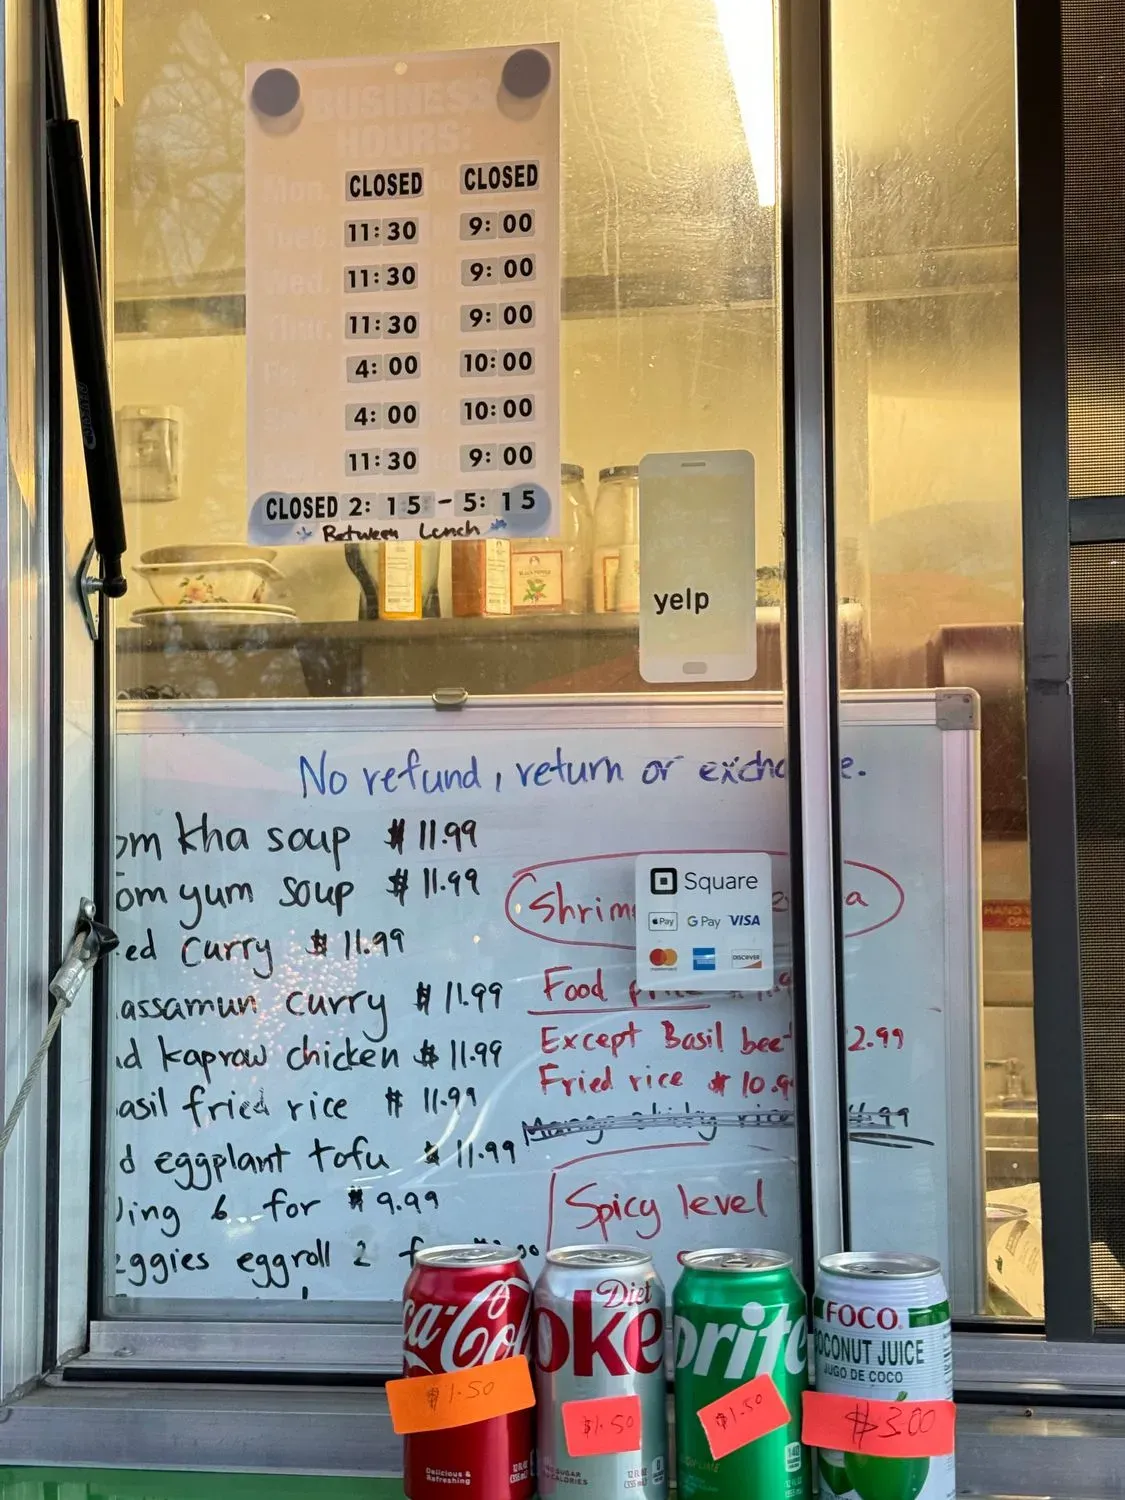 BUSINESS
HOURS:
Mon. CLOSED CLOSED
Tues. 11:30 9:00
Wed. 11:30 9:00
Thur. 11:30 9:00
Fri. 4:00 10:00
4:00 10:00
11:30 9:00
CLOSED 2:15-5:15
Between Lunch
yelp
No refund, return or excha e.
om kha soup $11.99
om yum soup $11.99
ed curry $11.99
assamun curry $11.99
d kapraw chicken $11.99
asil fried rice $11.99
d eggplant tofu $11.99
ing 6 for $9.99
eggies eggroll 2 f
Shrim a
Square
Pay G Pay VISA
mastercard DISCOVER
Food price
Except Basil beef 2.99
Fried rice $10.9
Spicy level
ca-Co
$1.50
Delicious &
Refreshing
Diet
oke
$1.50
prite
$1.50
FOCO
COCONUT JUICE
JUGO DE COCO
$3.00